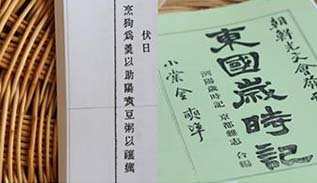 伏日
烹狗爲羹以助陽煑豆粥以禳癘
朝鮮光文會
東國歲時記
洌陽歲時記 京都雜志 合編
小棠金